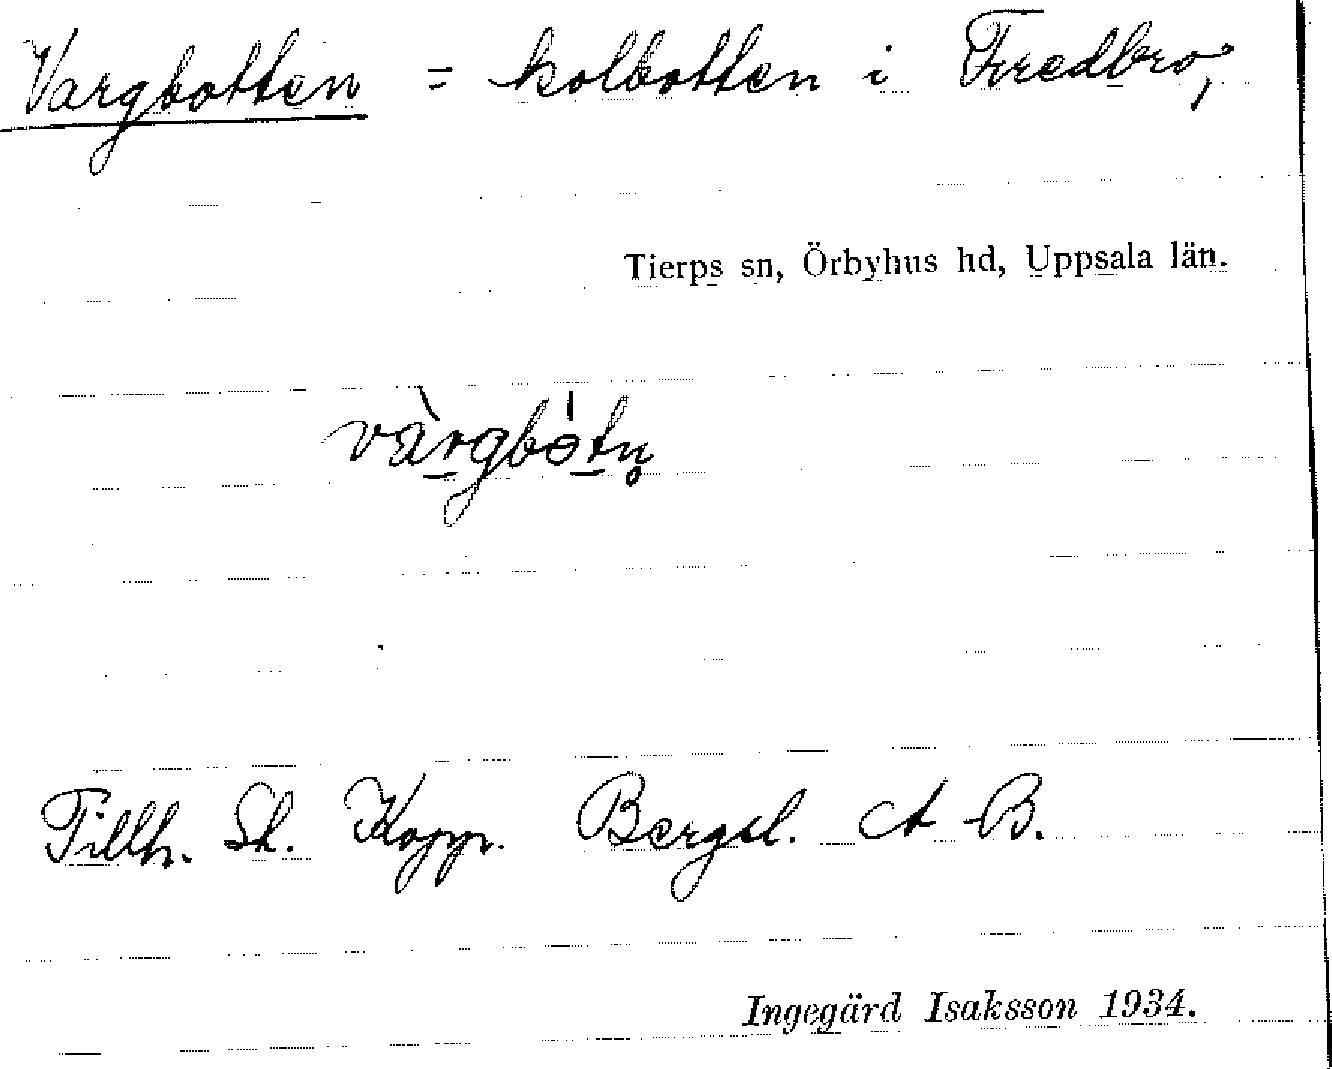 Vargbotten = kolbotten i Fredbro,
Tierps sn, Örbyhus hd, Uppsala län.
vàrgbótn̥
Tillh. St. Kopp. Bergsl. A B.
Ingegärd Isaksson 1934.